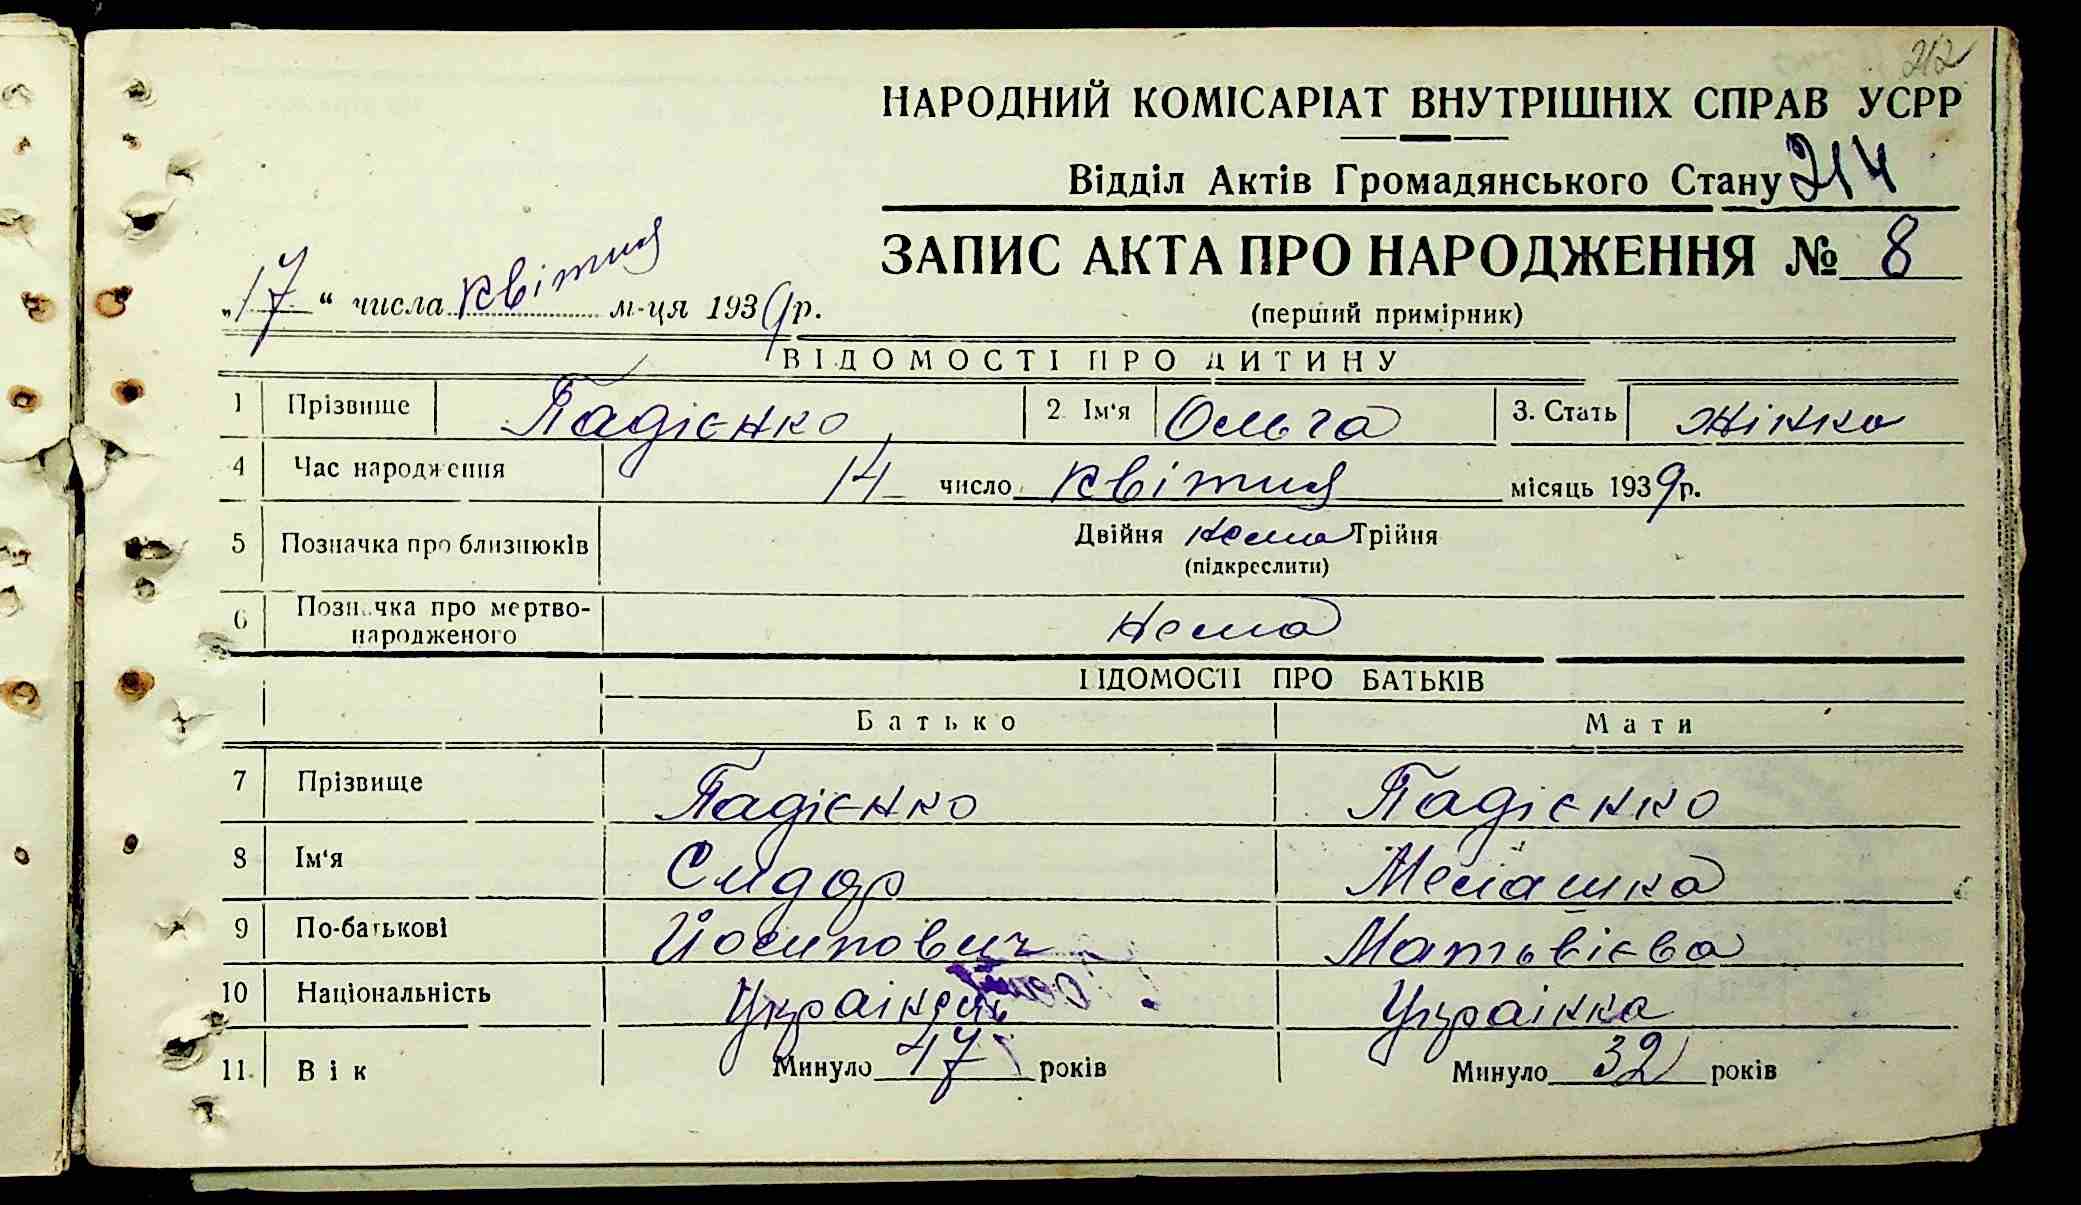 212
НАРОДНИЙ КОМІСАРІАТ ВНУТРІШНІХ СПРАВ УСРР
Відділ Актів Громадянського Стану 214
ЗАПИС АКТА ПРО НАРОДЖЕННЯ № 8
„17“ числа квітня м-ця 1939 р.
(перший примірник)
ВІДОМОСТІ ПРО ДИТИНУ
1 Прізвище Падієнко 2. Ім'я Ольга 3. Стать жінка
4 Час народження 14 число квітня місяць 1939 р.
5 Позначка про близнюків Двійня нема Трійня
(підкреслити)
6 Позначка про мертво-
народженого нема
ВІДОМОСТІ ПРО БАТЬКІВ
Батько Мати
7 Прізвище Падієнко Падієнко
8 Ім'я Сидор Мелашка
9 По-батькові Йосипович Матвієва
10 Національність Українець Українка
11. Вік Минуло 47 років Минуло 32 років